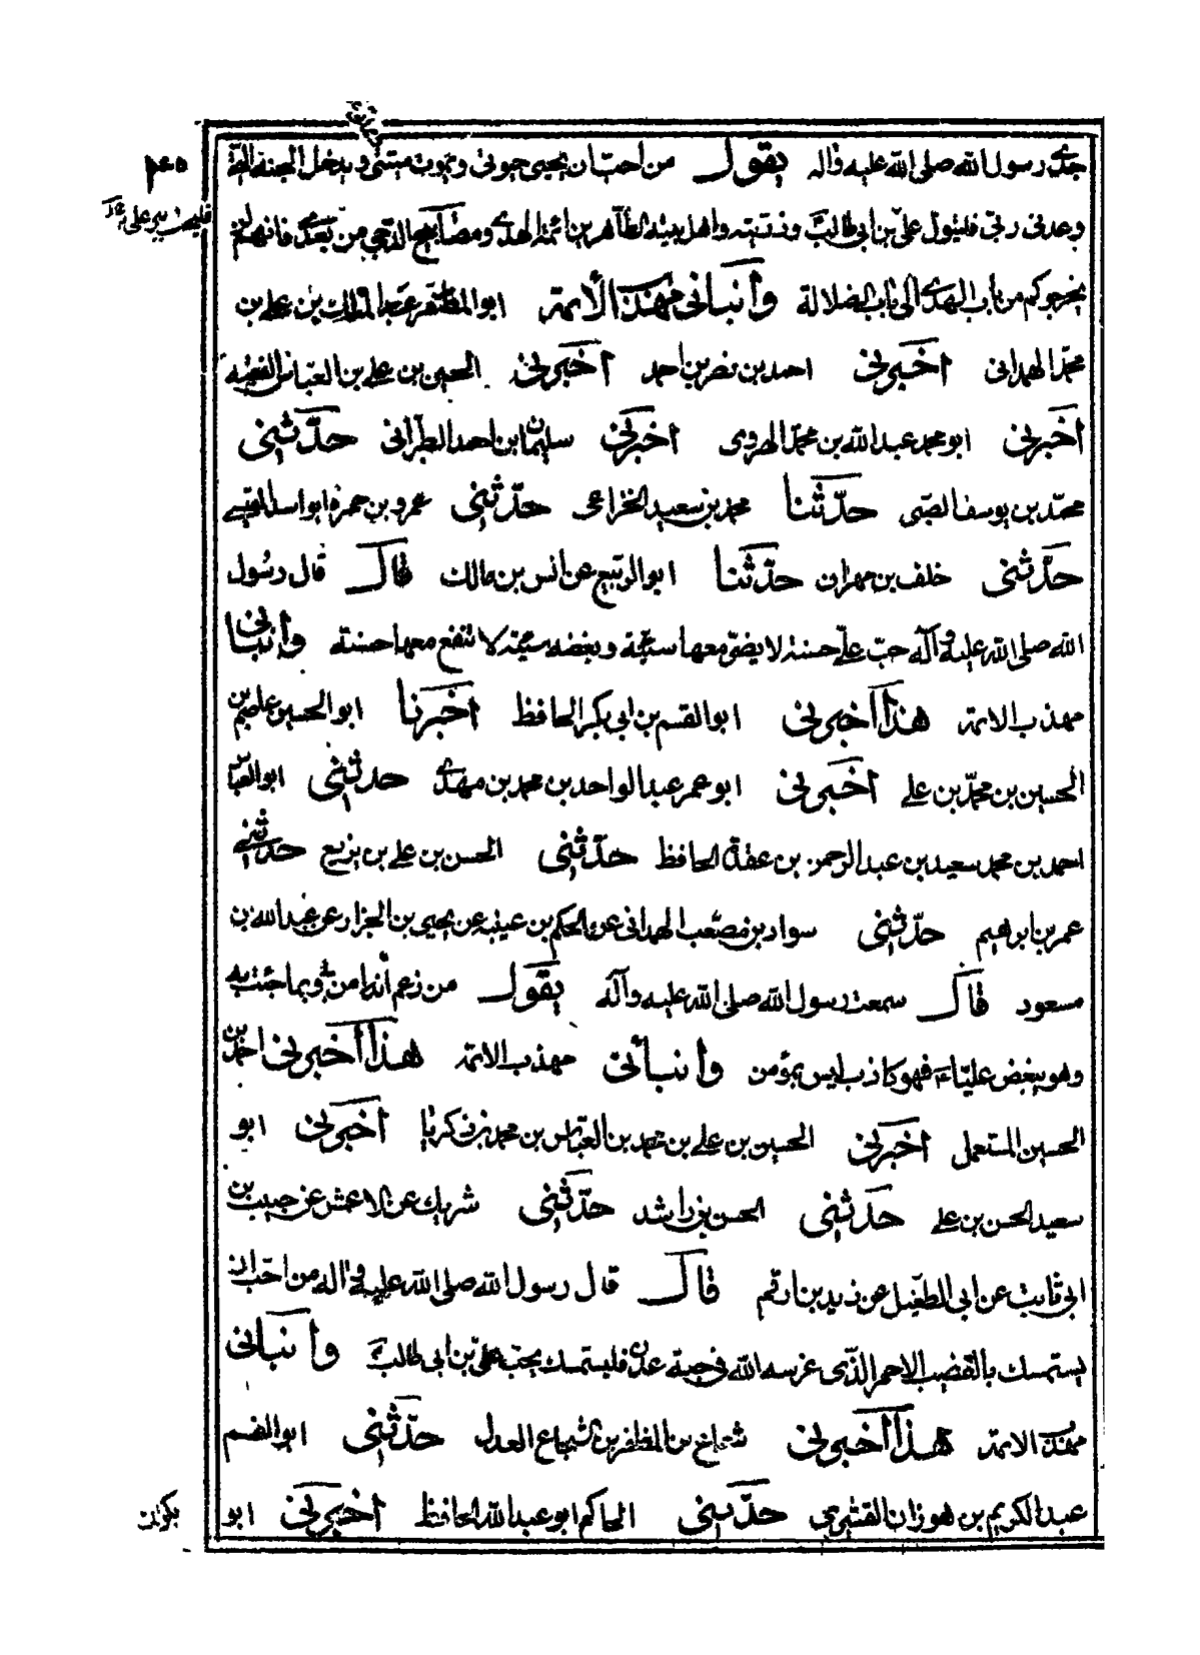 جدى رسول الله صلى الله عليه واله يقول من احب ان يحيى حيوتى و يموت ميتتى و يدخل الجنة التى
وعدنى ربى فليتول على بن ابى طالب و ذريته و اهل بيته الطاهرين ائمة الهدى ومصابيح الدجى من بعدى فانهم لن
يخرجوكم من باب الهدى الى باب الضلالة وأنبانى مهذب الأئمة ابو المظفر عبد الملك بن على بن
محمد الهمدانى أخبرنى احمد بن نصر بن احمد أخبرنى الحسين بن على بن العباس الفقيه
أخبرنى ابو محمد عبد الله بن محمد الهروى أخبرنى سليمان بن احمد الطبرانى حدّثنى
محمّد بن يوسف الضبى حدّثنا محمد بن سعيد الخزاعى حدّثنى عمرو بن حمزة ابو اسد القيسى
حدّثنى خلف بن مهران حدّثنا ابو الربيع عن انس بن مالك قال قال رسول
الله صلى الله عليه وآله حبّ علىّ حسنة لا يضرّ معها سيّئة وبغضه سيّئة لا تنفع معها حسنة وأنبانى
مهذب الائمة هذا أخبرنى ابو القسم بن ابى بكر الحافظ أخبرنا ابو الحسين عاصم بن
الحسين بن محمّد بن على أخبرنى ابو عمر عبد الواحد بن محمد بن مهدى حدثنى ابو العباس
احمد بن محمد سعيد بن عبد الرحمن بن عقدة الحافظ حدّثنى الحسن بن على بن بزيع حدثنى
عمر بن ابرهيم حدّثنى سوار بن مصعب الهمدانى عن الحكم بن عيينة عن يحيى بن الجزار عن عبد الله بن
مسعود قال سمعت رسول الله صلى الله عليه وآله يقول من زعم أنه امن بى وبما جئت به
وهو يبغض عليّا فهو كاذب ليس بمؤمن وأنبأنى مهذب الائمة هذا أخبرنى احمد بن
الحسين المستعمل أخبرنى الحسين بن على بن محمد بن العبّاس بن محمد بن زكريّا أخبرنى ابو
سعيد الحسن بن على حدّثنى الحسن بن راشد حدّثنى شريك عن الاعمش عن حبيب بن
ابى ثابت عن ابى الطفيل عن زيد بن ارقم قال قال رسول الله صلى الله عليه واله من احب ان
يستمسك بالقضيب الاحمر الذى غرسه الله فى جنة عدن فليستمسك بحب علىّ بن ابى طالب وأنبانى
مهذب الائمة هذا أخبرنى شجاع بن المظفر بن شجاع العدل حدّثنى ابو القسم
عبد الكريم بن هوزان القشيرى حدّثنى الحاكم ابو عبد الله الحافظ أخبرنى ابو
بكر بن